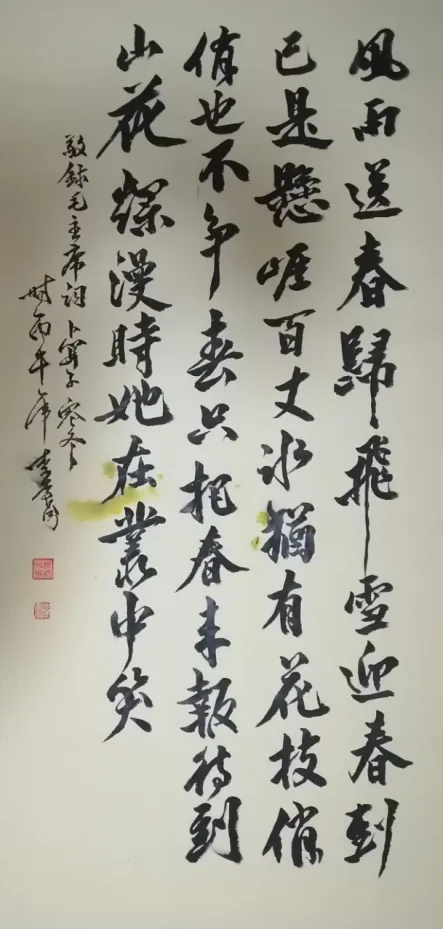 風雨送春歸飛雪迎春到
已是懸崕百丈冰猶有花枝俏
俏也不争春只把春来報待到
山花爛漫時她在叢中笑
敬録毛主席词卜算子寒冬
时丙午年